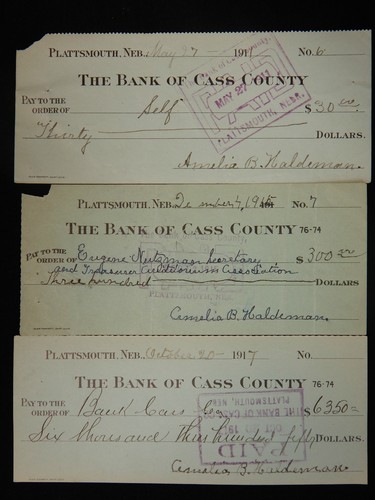 PLATTSMOUTH, NEB. May 27 1911 No. 6
THE BANK OF CASS COUNTY
PAY TO THE
ORDER OF Self $30 00
Thirty DOLLARS.
MAY 27
PLATTSMOUTH, NEBR.
Amelia B. Haldeman.
PLATTSMOUTH, NEB. December 7, 191 No. 7
THE BANK OF CASS COUNTY 76-74
PAY TO THE
ORDER OF Eugene Nutzman Secretary $300 00
and Treasurer Auditorium Association
Three hundred DOLLARS
PLATTSMOUTH, NEB.
Amelia B. Haldeman.
PLATTSMOUTH, NEB. October 20 1917 No.
THE BANK OF CASS COUNTY 76-74
PAY TO THE
ORDER OF Bank Cass Co $6350
Six thousand three hundred fifty DOLLARS.
PAID
THE BANK OF CASS
PLATTSMOUTH, NEB.
Amelia B. Haldeman.